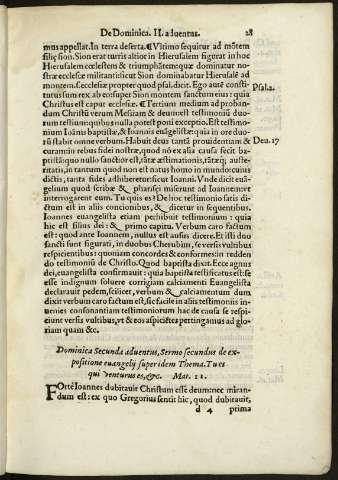 De Dominica. II. aduentus. 28
mus appellat. In terra deserta. ¶Vltimo sequitur ad mõtem
filię sion. Sion erat turris altior in Hierusalem figurat in hoc
Hierusalem cœlestem & triumphãtem quæ dominatur nostræ
ecclesiæ militanti: sicut Sion dominabatur Hierusalẽ ad
montem. s. ecclesiæ propter quod psal. dicit. Ego autẽ constitutus
Psal. 2.
sum rex ab eo super Sion montem sanctum eius: quia
Christus est caput ecclesiæ. ¶Tertium medium ad probandum
Christũ verum Messiam & deum: est testimoniũ duorum
testium: quibus nulla potest poni exceptio. Est testimonium
Ioãnis baptistæ, & Ioannis euãgelistæ: quia in ore duorũ
Deu. 17
stabit omne verbum. Habuit deus tantã prouidentiam &
curam in rebus fidei nostræ: quod nõ ex alia causa fecit baptistã:
quo nullo sanctior est,
in tantum quod non est natus homo in mundo: cuius
dictis, tanta fides adhiberetur sicut Ioanni. Vnde dicit euãgelium
quod scribæ & pharisęi miserunt ad Ioannem: vt
interrogarent eum. Tu quis es? De hoc testimonio satis dictum
est in aliis concionibus, & dicetur in sequentibus.
Ioannes euangelista etiam perhibuit testimonium: quia
hic est filius dei: & primo capitu. Verbum caro factum
est: quod ante Ioannem, nullus est ausus dicere. Et isti duo
sancti sunt figurati, in duobus Cherubim, se versis vultibus
respicientibus: quoniam concordes & conformes in reddendo
testimoniũ de Christo. Quod baptista dixit. Ecce agnus
dei, euangelista confirmauit: quia baptista testificatus est: se
esse indignum soluere corrigiam calciamenti Euangelista
declarauit pedem, scilicet, verbum, & calciamentum dum
dixit verbum caro factum est, sic facile in aliis testimoniis inuenies
consonantiam testimoniorum hac de causa se respiciunt
versis vultibus, vt & eos aspiciẽtes pertingamus ad gloriam
quam &c.
Dominica Secunda aduentus, Sermo secundus de expositione
euangelij super idem Thema. Tu es
qui venturus es, &c. Mat. 11.
Fortè Ioannes dubitauit Christum esse deum: nec mirandum
est: ex quo Gregorius sentit hic, quod dubitauit,
d 4 prima